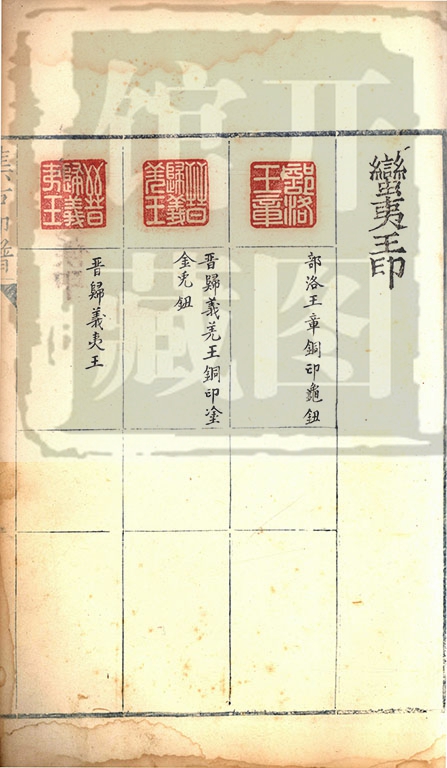 蠻夷王印
部洛王章
部洛王章銅印龜鈕
晉歸義羌王
晉歸義羌王銅印塗
金兎鈕
晉歸義夷王
晉歸義夷王
集古印譜
开图馆藏